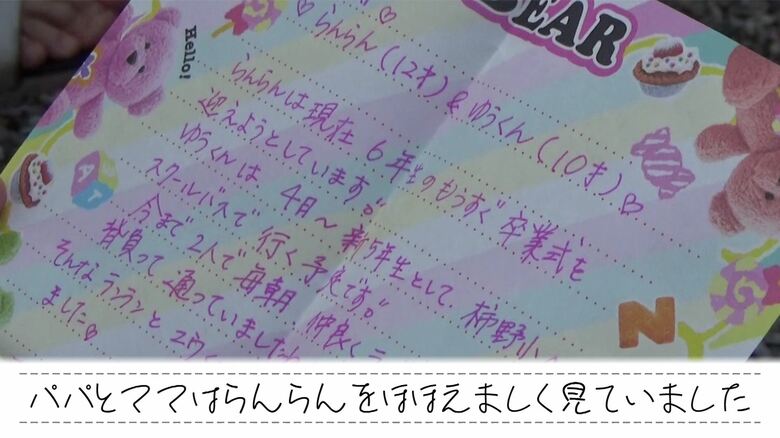 BEAR
Hello!
♡らんらん(12才)&ゆうくん(10才)♡
らんらんは現在6年生のもうすぐ卒業式を
迎えようとしています。
ゆうくんは4月〜新5年生として柿野小
スクールバスで行く予定です。
今まで2人で毎朝仲良くラ
背負って通っていました
そんなランランとユウ
ました♡
N
パパとママはらんらんをほほえましく見ていました